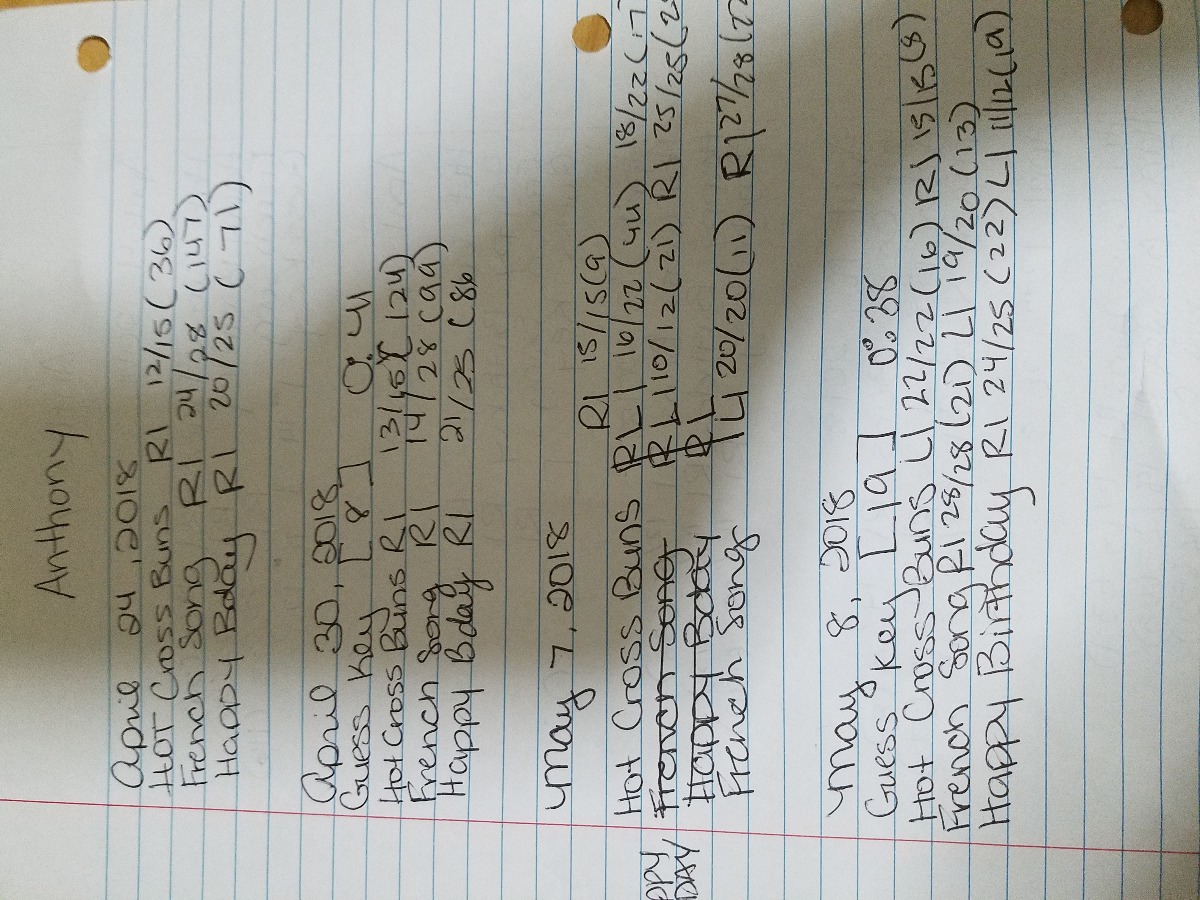 Anthony
April 24, 2018
HOT Cross Buns R1 12/15 (36)
French Song R1 24/28 (147)
Happy Bday R1 20/25 (71)
April 30, 2018
Guess Key [8] 0:4
Hot Cross Buns R1 13/15 (124)
French Song R1 14/28 (99)
Happy Bday R1 21/25 (86
May 7, 2018
R1 15/15(9)
Hot Cross Buns L1 16/22 (44) 18/22 (17
PPY DAY, French Song R1 L1 10/12 (21) R1 25/25 (2
Happy Bday R1
French Song L1 20/20 (11) R1 27/28 (22
May 8, 2018
Guess Key [19] 0:38
Hot Cross Buns L1 22/22 (16) R1 15/15 (8)
French Song R1 28/28 (21) L1 19/20 (13)
Happy Birthday R1 24/25 (22) L1 11/12 (19)